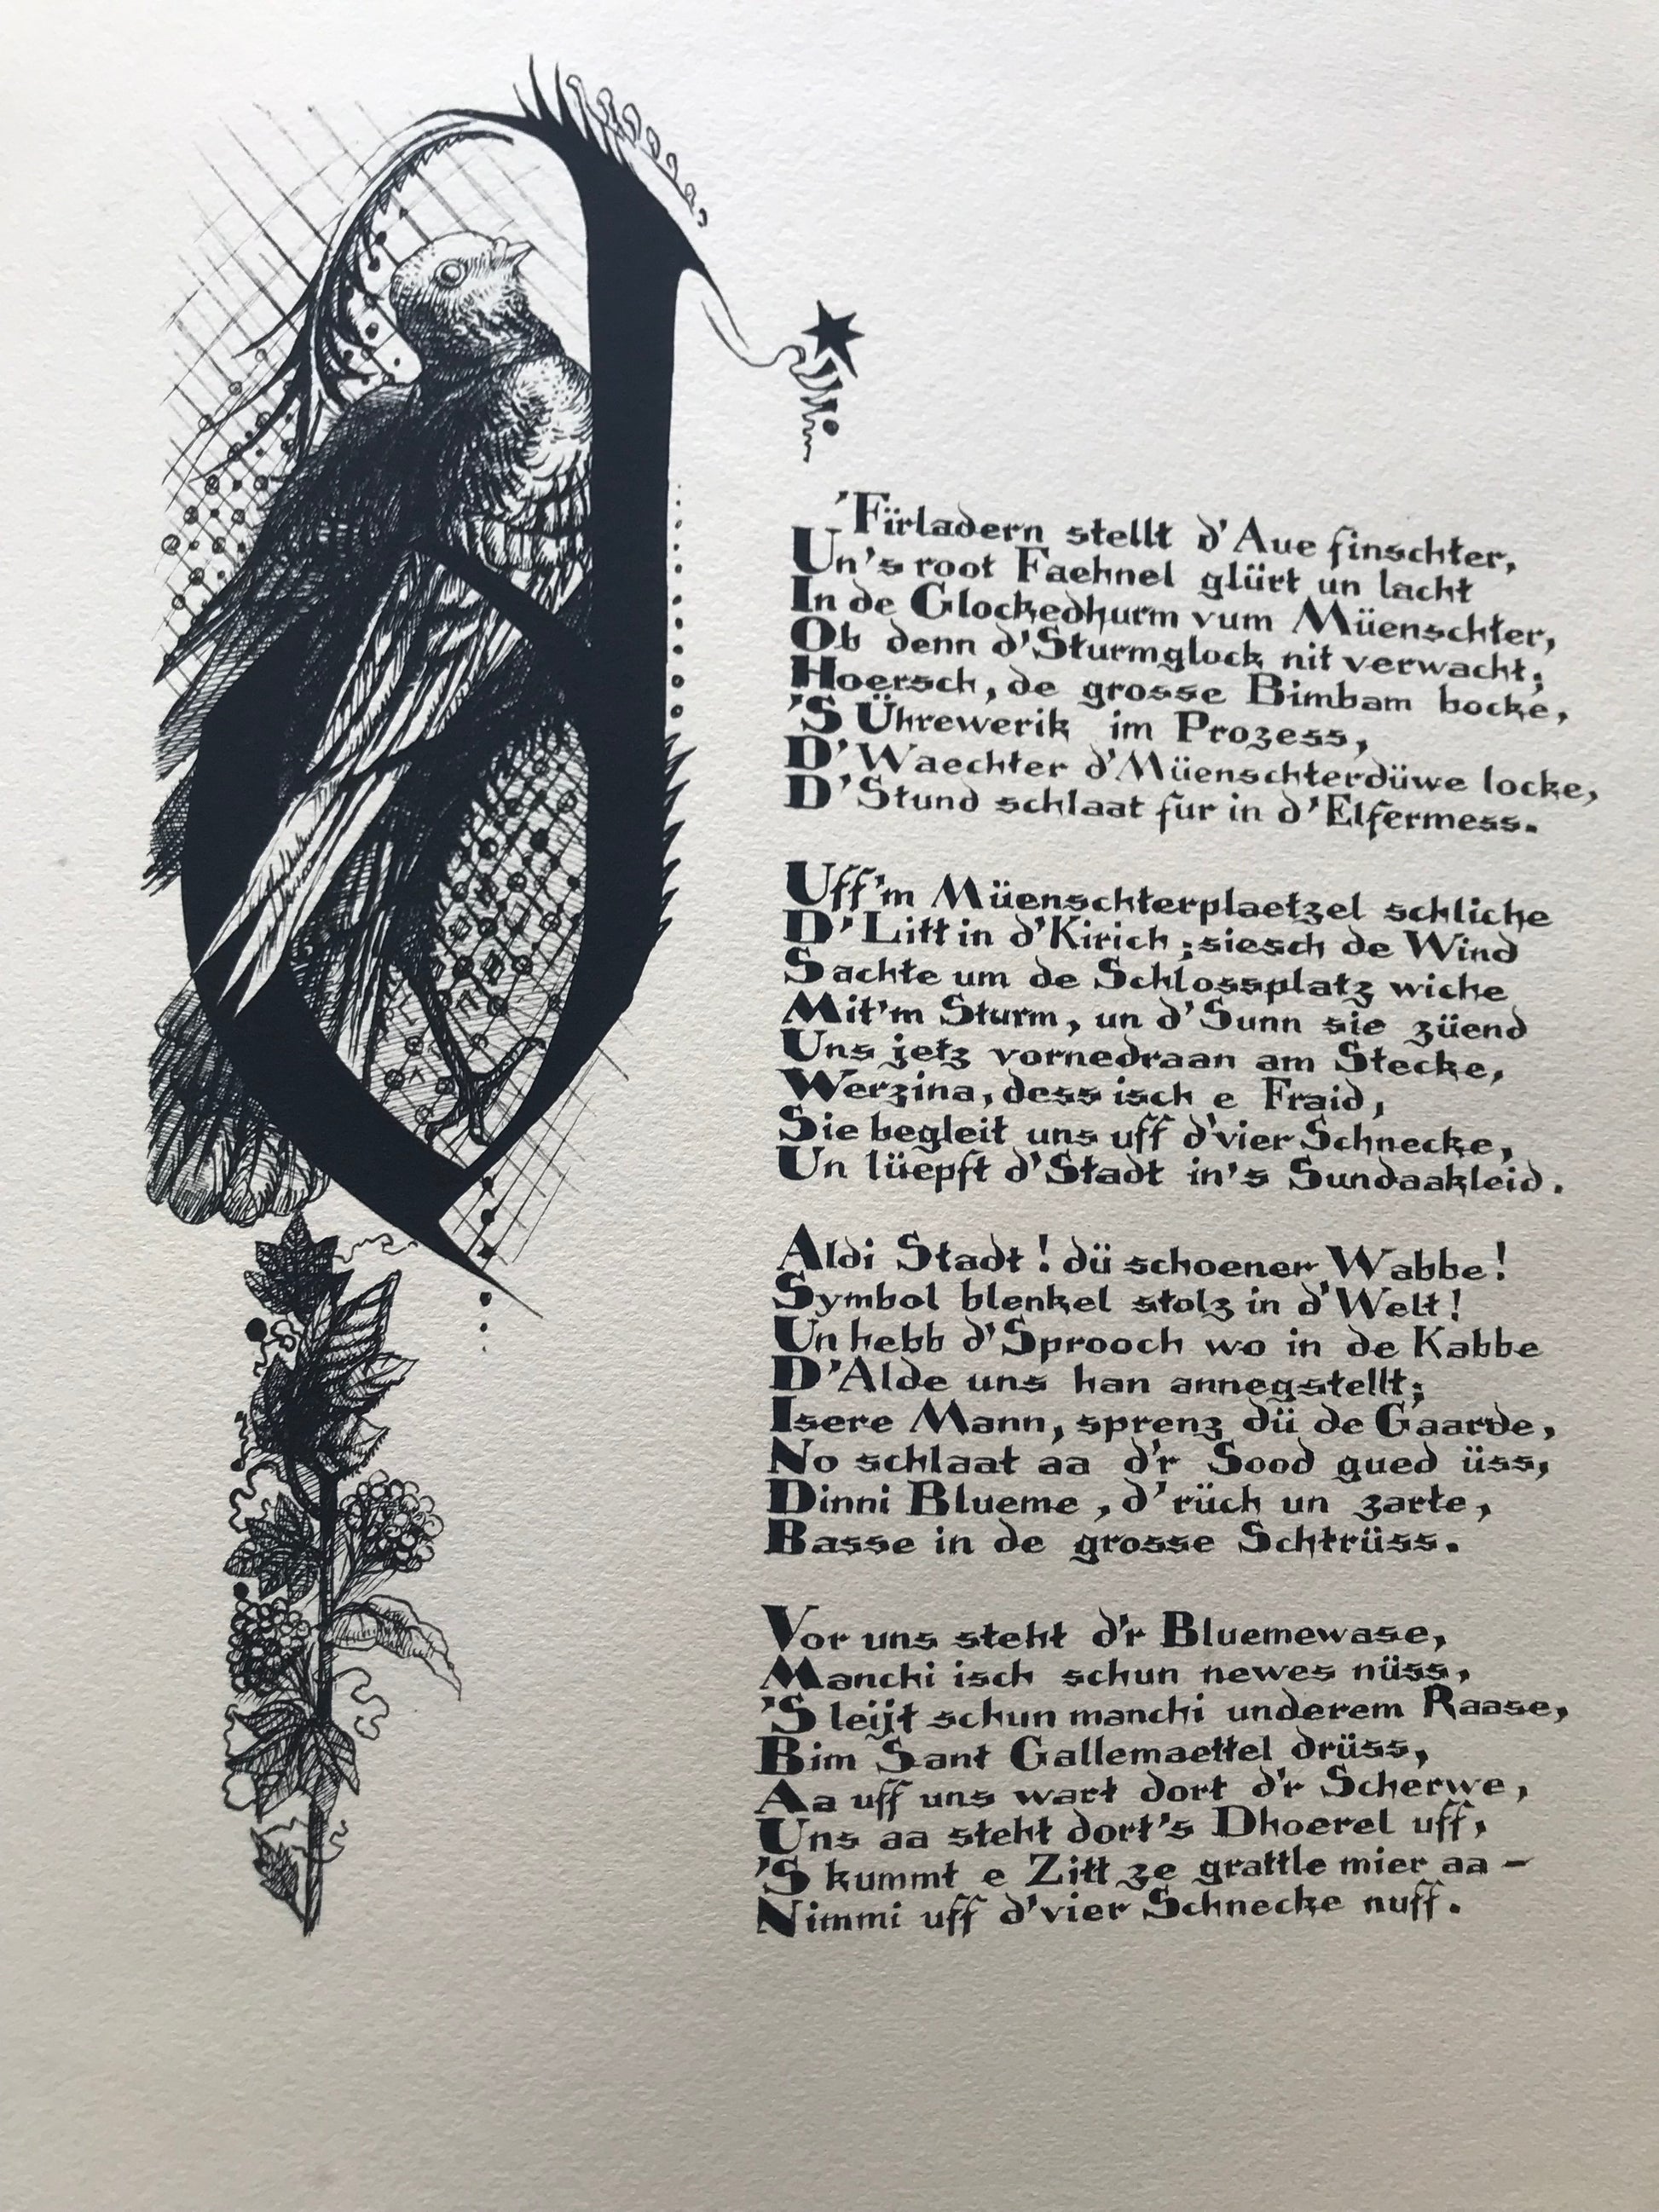 D'Fïrladern stellt d'Aue finschter,
Un's root Faehnel glürt un lacht
In de Glockedhurm vum Müenschter,
Ob denn d'Sturmglock nit verwacht;
Hoersch, de grosse Bimbam bocke,
'S Ührewerik im Prozess,
D'Waechter d'Müenschterdüwe locke,
D'Stund schlaat fur in d'Elfermess.
Uff'm Müenschterplaetzel schliche
D'Litt in d'Kirich; siesch de Wind
Sachte um de Schlossplatz wiche
Mit'm Sturm, un d'Sunn sie züend
Uns jetz vornedraan am Stecke,
Werzina, dess isch e Fraid,
Sie begleit uns uff d'vier Schnecke,
Un lüepft d'Stadt in's Sundaakleid.
Aldi Stadt! dü schoener Wabbe!
Symbol blenkel stolz in d'Welt!
Un hebb d'Sprooch wo in de Kabbe
D'Alde uns han annegstellt;
Isere Mann, sprenz dü de Gaarde,
No schlaat aa d'r Sood gued üss,
Dinni Blueme, d'rüch un zarte,
Basse in de grosse Schtrüss.
Vor uns steht d'r Bluemewase,
Manchi isch schun newes nüss,
'S leijt schun manchi underem Raase,
Bim Sant Gallemaettel drüss,
Aa uff uns wart dort d'r Scherwe,
Uns aa steht dort's Dhoerel uff,
'S kummt e Zitt ze grattle mier aa –
Nimmi uff d'vier Schnecke nuff.